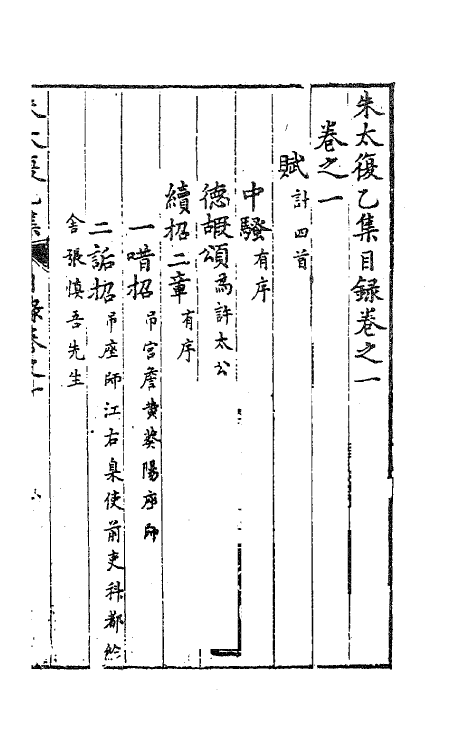 朱太復乙集目録卷之一
卷之一
賦計四首
中騷有序
德嘏頌為許太公
續招二章有序
一唶招吊宮詹黄葵陽座師
二詬招吊座師江右臬使前吏科都給
舍張慎吾先生